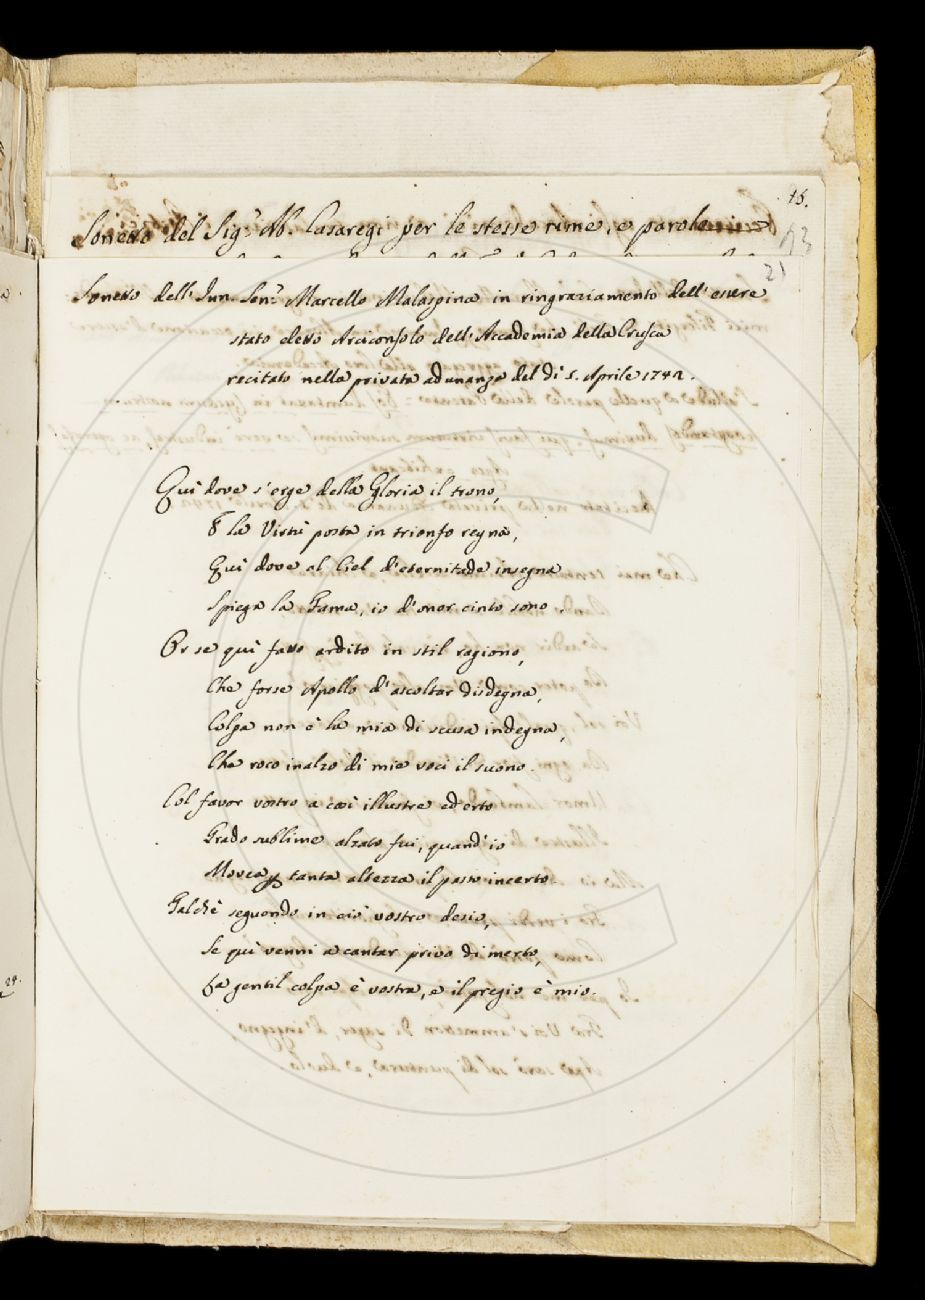 15.
Sonetto del Sig.r Ab. Casaregi per le stesse rime, e parole
43
21
Sonetto dell' Inn. Sen.e Marcello Malaspina in ringraziamento dell' essere
stato eletto Arciconsolo dell' Accademia della Crusca
recitato nella privata adunanza del dì 5. Aprile 1742.
Quì dove s'erge della Gloria il trono,
E la Virtù posta in trionfo regna,
Quì dove al Ciel d'eternitade insegna
Spiega la Fama, io d'onor cinto sono.
Or se quì fatto ardito in stil ragiono,
Che forse Apollo d'ascoltar disdegna,
Colpa non è la mia di scusa indegna,
Che roco inalzo di mie voci il suono.
Col favor vostro a così illustre ed erto
Grado sublime alzato fui, quand'io
Movea p tanta altezza il passo incerto
Talchè seguendo in ciò vostro desio,
Se quì venni a cantar privo di merto,
La gentil colpa è vostra, e il pregio è mio.
29.